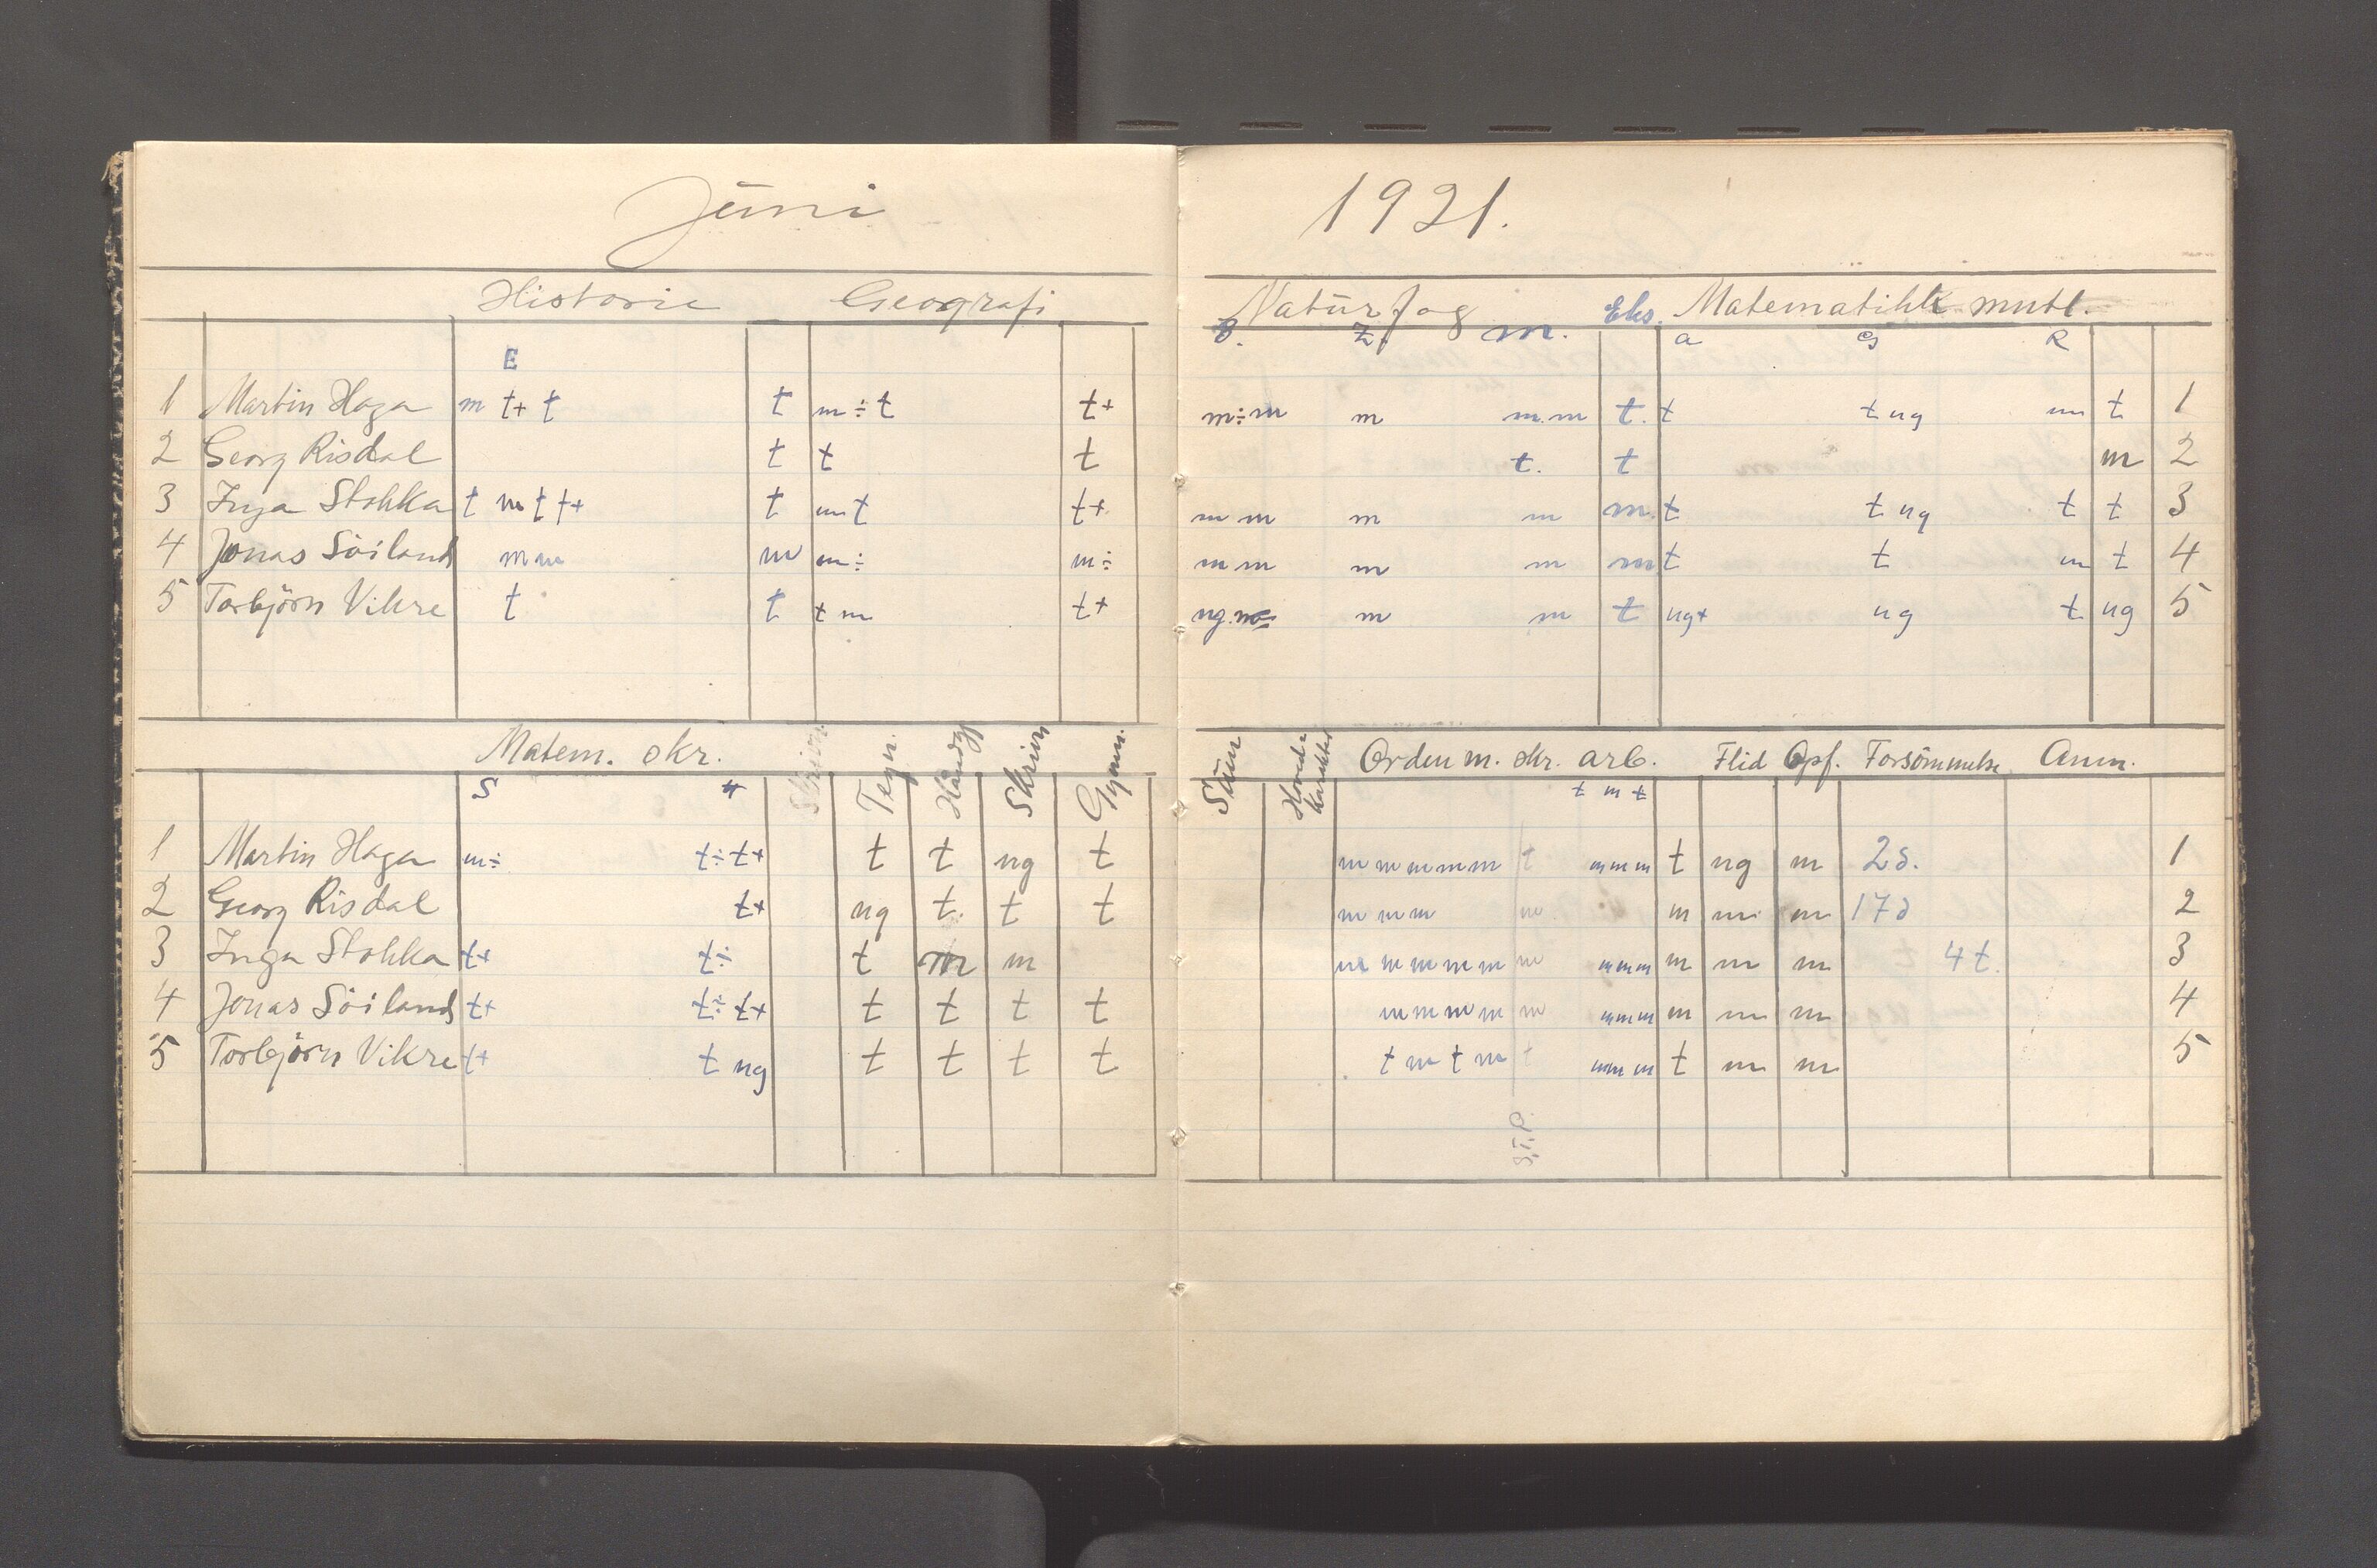 Juni
Historie Geografi
E
1 Martin Haga m t+ t t m÷t t+
2 Georg Risdal t t t
3 Inga Stokka t m t t+ t m t t+
4 Jonas Söiland m m m m÷ m÷
5 Torbjörn Vikre t t t m t+
Matem. skr. Tegn. Håndgj Skrivn Gymn.
S
1 Martin Haga m÷ t÷ t+ t t ng t
2 Georg Risdal t+ ng t. t t
3 Inga Stokka t+ t÷ t m m
4 Jonas Söiland t+ t÷ t+ t t t t
5 Torbjörn Vikre t+ t ng t t t t
1921.
Naturfag Eks. Matematikk mntl.
B. Z. M. a G R
m÷m m m.m t. t t ng m t 1
t. t m 2
m m m m m. t t ng t t 3
m m m m m t t m t 4
ng. m m t ng+ ng t ng 5
Orden m. skr. arb. Flid Opf. Forsömmelse Anm.
t m t
m m m m m t m m m t ng m 2d. 1
m m m m m m m 17d 2
m m m m m m m m m m m m 4t. 3
m m m m m m m m m m m 4
t m t m t m m m t m m 5